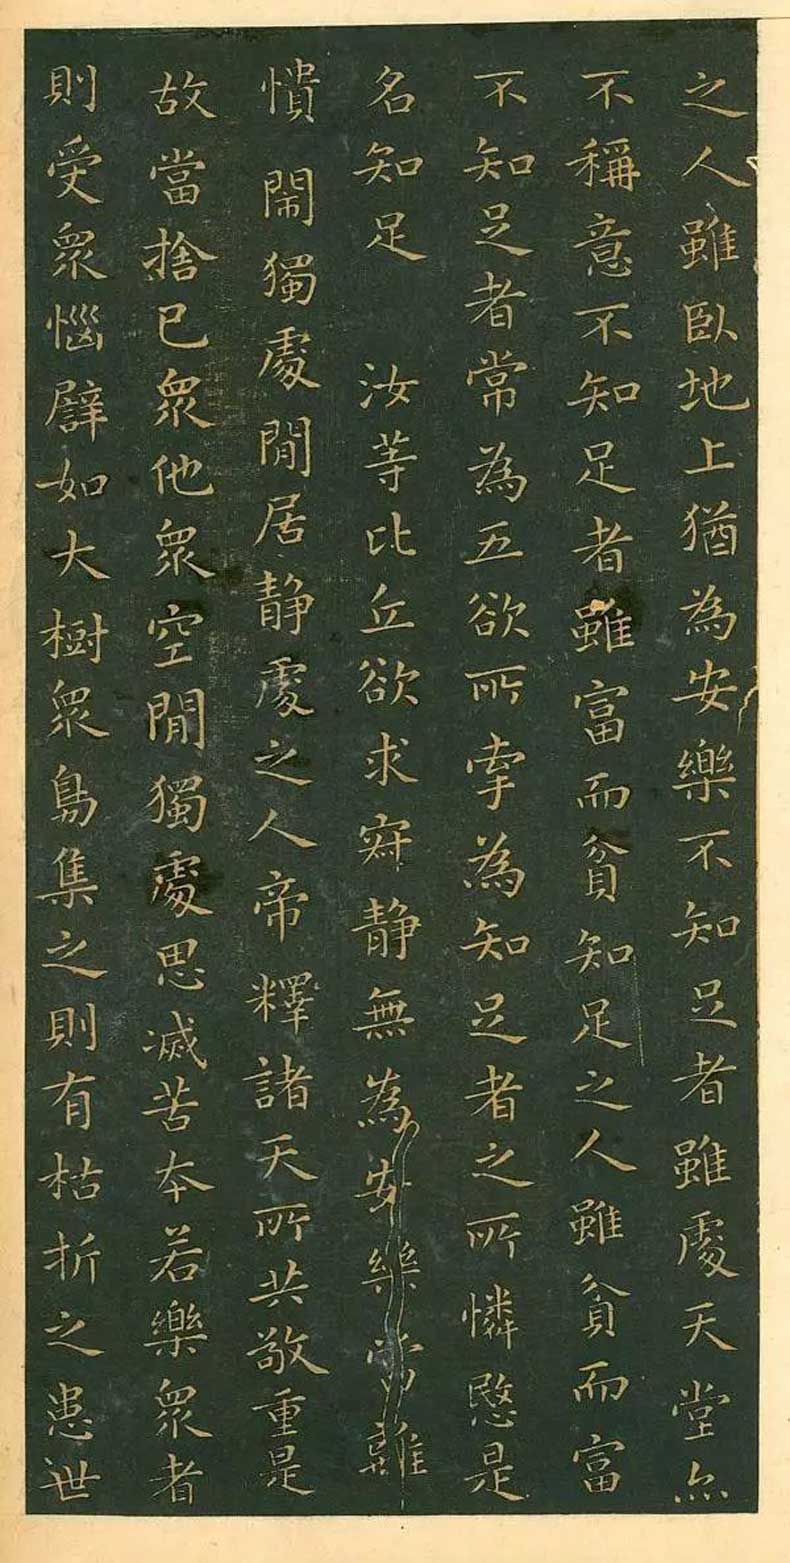 之人雖臥地上猶為安樂不知足者雖處天堂亦
不稱意不知足者雖富而貧知足之人雖貧而富
不知足者常為五欲所牽為知足者之所憐愍是
名知足 汝等比丘欲求寂靜無為安樂當離
憒閙獨處閒居靜處之人帝釋諸天所共敬重是
故當捨已眾他眾空閒獨處思滅苦本若樂眾者
則受眾惱譬如大樹眾鳥集之則有枯折之患世